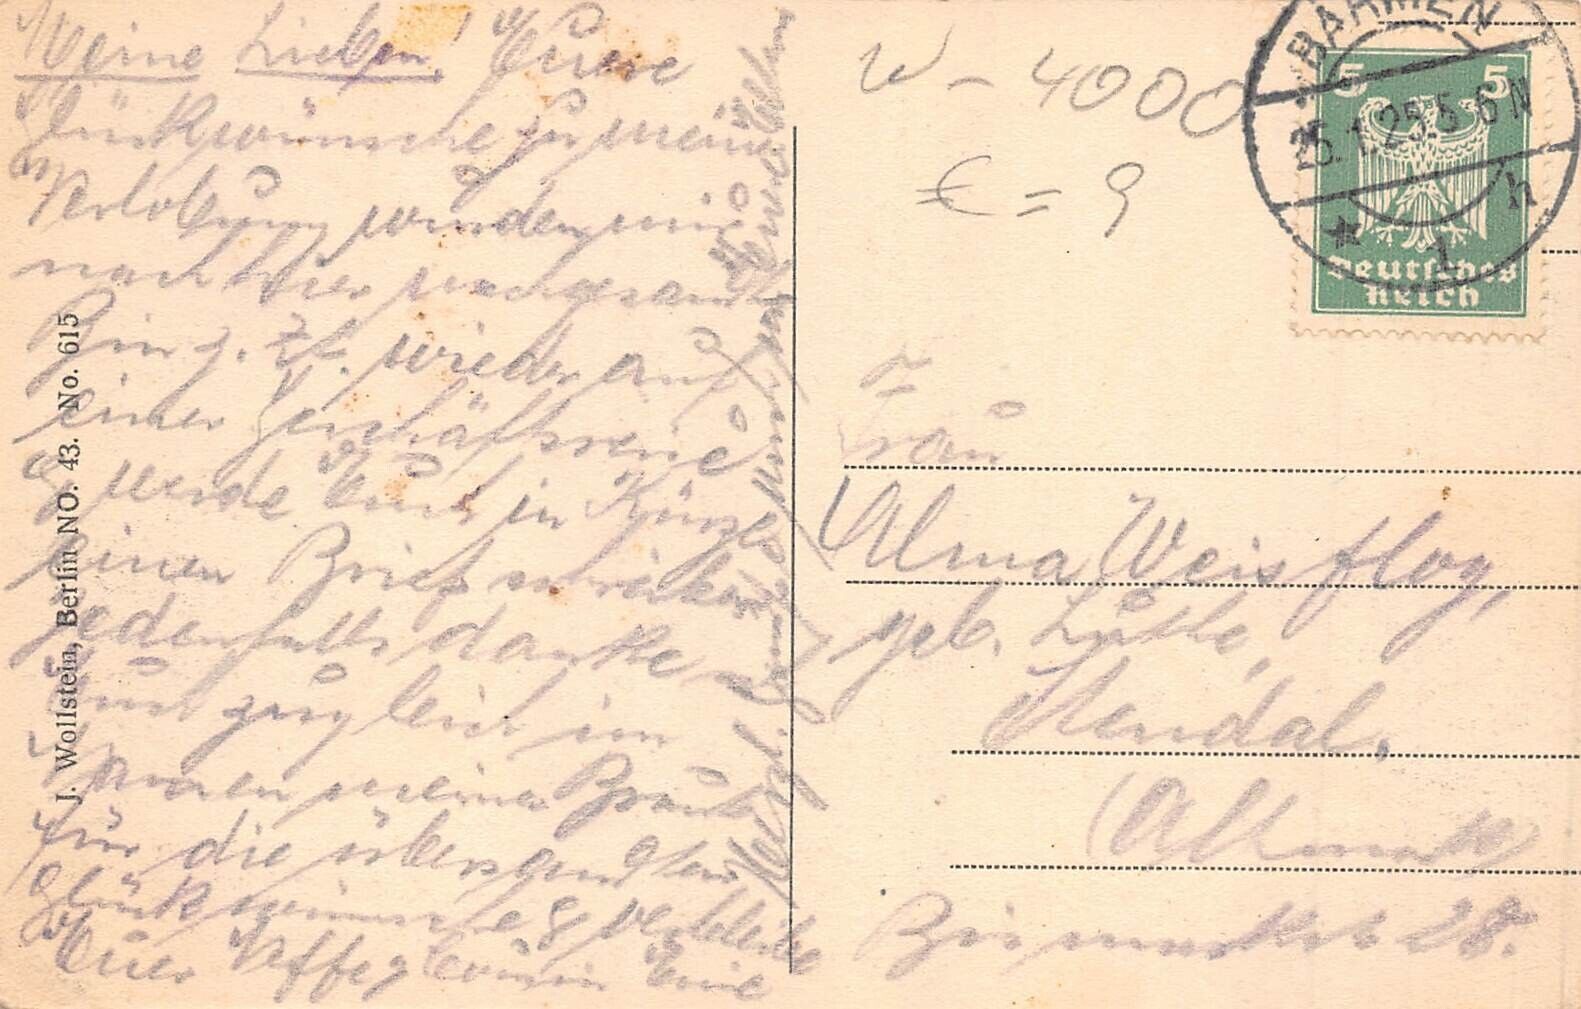 Meine Lieben! Euere
Glückwünsche zu meiner
Verlobung wurden mir
nach hier nachgesandt
Bin z. Zt. wieder auf
einer Geschäftsreise
& werde Euch in Kürze
einen Brief schreiben
Jedenfalls danke
Euch zugleich im
Namen meiner Braut
für die übersandten
Glückwünsche & verbleibe
Euer Neffe
J. Wollstein, Berlin NO. 43. No. 615
W - 4000
€ = 9
BARMEN
25.1.25.5-6N
* 1 h
5 5
Deutsches
Reich
Frau
Alma Weisflog,
geb. Lütke,
Stendal.
(Altmark)
Bismarckstr 28.